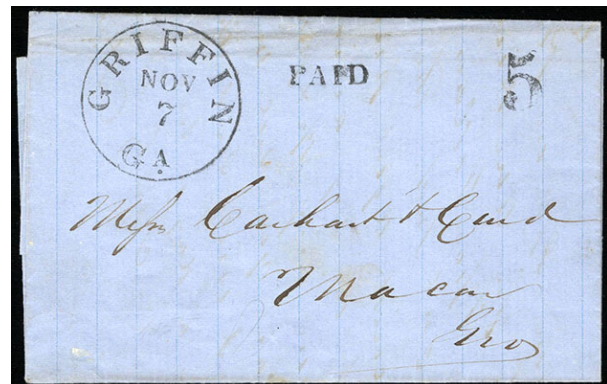 GRIFFIN
NOV
7
GA
PAID
5
Messrs Carhart & Curd
Macon
Geo